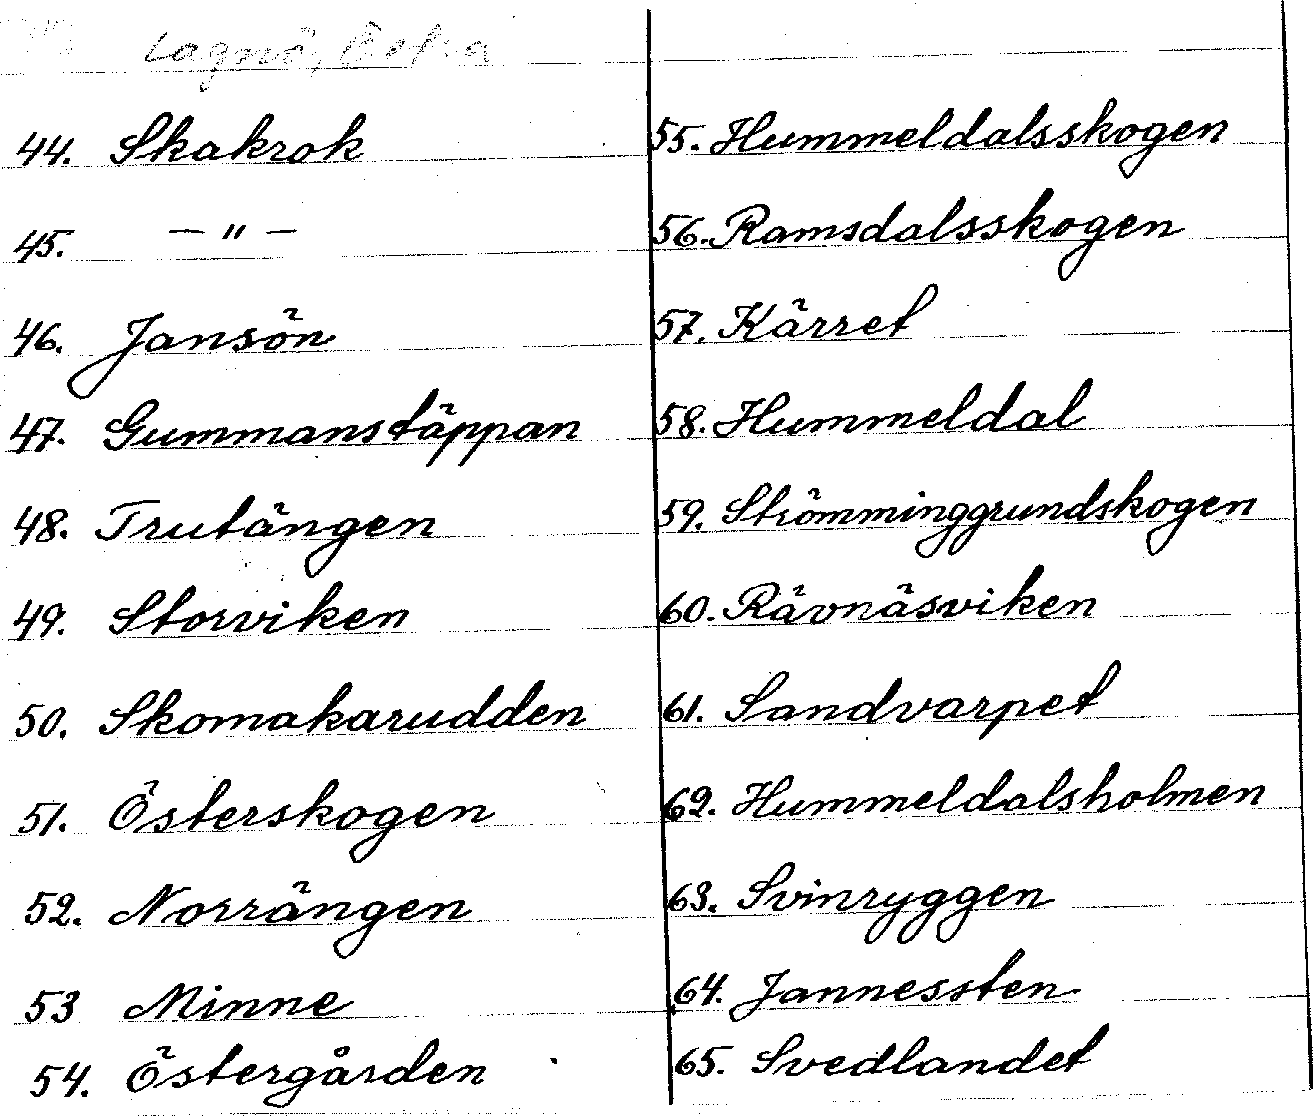 Lagnö, Östra
44. Skakrok
45. — " —
46. Jansön
47. Gummanstäppan
48. Trutängen
49. Storviken
50. Skomakarudden
51. Österskogen
52. Norrängen
53 Minne
54. Östergården
55. Hummeldalsskogen
56. Ramsdalsskogen
57. Kärret
58. Hummeldal
59. Strömminggrundskogen
60. Rävnäsviken
61. Sandvarpet
62. Hummeldalsholmen
63. Svinryggen
64. Jannessten
65. Svedlandet